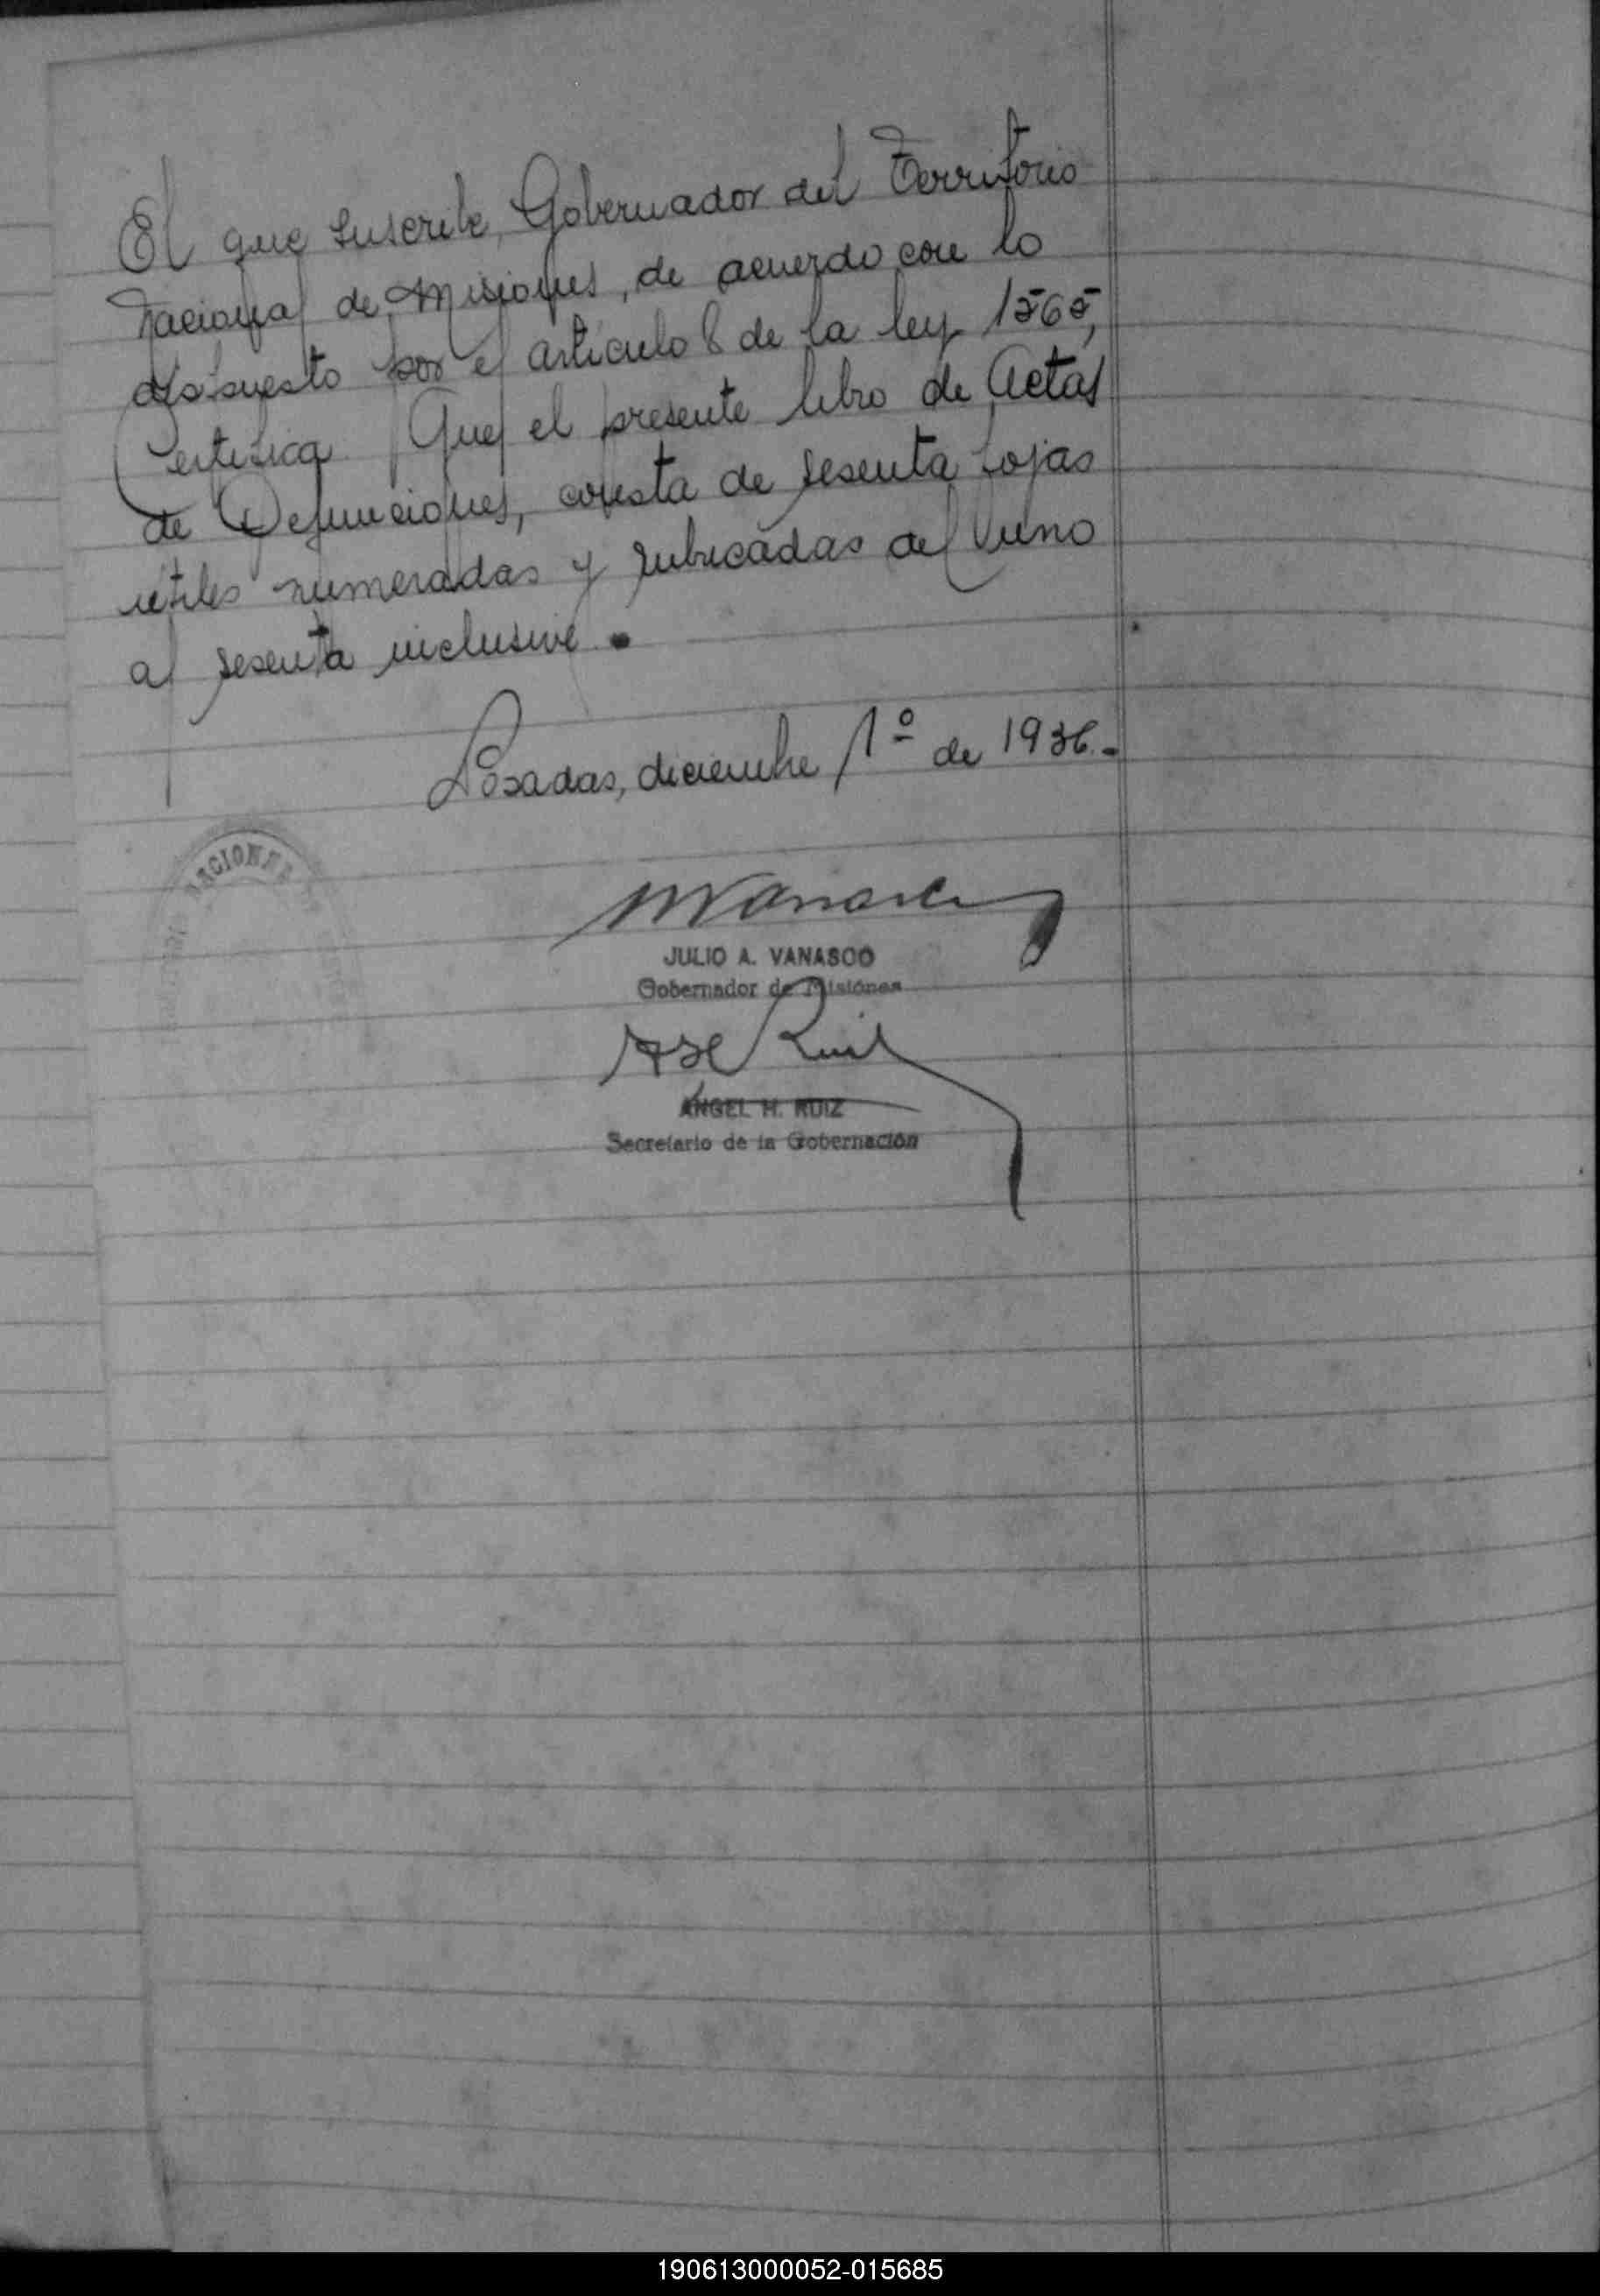 El que suscribe, Gobernador del Territorio
Nacional de Misiones, de acuerdo con lo
dispuesto por el artículo 8 de la ley 1565,
Certifica Que el presente libro de Actas
de Defunciones, consta de sesenta fojas
útiles numeradas y rubricadas del uno
al sesenta inclusive.
Posadas, diciembre 1º de 1936.-
NACIONAL
JULIO A. VANASCO
Gobernador de Misiones
A H Ruiz
ANGEL H. RUIZ
Secretario de la Gobernación
190613000052-015685